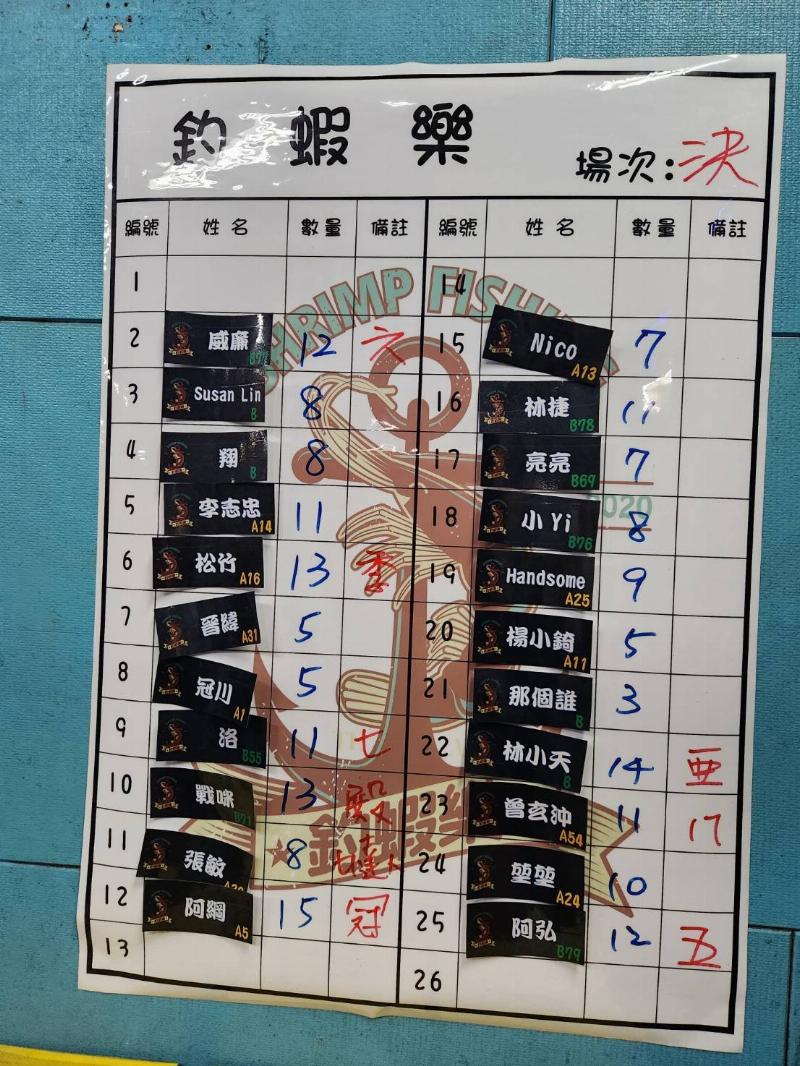 釣 蝦 樂
場次:決
編號 姓名 數量 備註 編號 姓名 數量 備註
1 14
2 威廉 12 六 15 Nico A13 7
3 Susan Lin B 8 16 林捷 B78 11
4 翔 B 8 17 亮亮 B69 7
5 李志忠 A14 11 18 小Yi B76 8
6 松竹 A16 13 季 19 Handsome A25 9
7 晉緯 A31 5 20 楊小錡 A11 5
8 冠川 A1 5 21 那個誰 B 3
9 洛 B55 11 七 22 林小天 B 14 亞
10 戰咪 B71 13 殿 23 曾玄沖 A54 11 八
11 張敏 8 24 堃堃 A24 10
12 阿綱 A5 15 冠 25 阿弘 B79 12 五
13 26
SHRIMP FISHING
2020
釣蝦樂